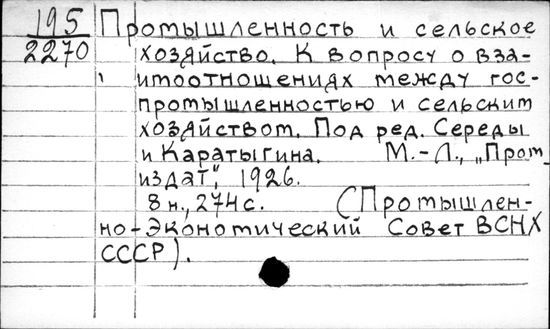 195 Промышленность и сельское
2270 хозяйство. К вопросу о вза-
имоотношениях между гос-
промышленностью и сельским
хозяйством. Под ред. Середы
и Каратыгина. М.-Л., „Пром_
издат", 1926.
8 н., 274 с. (Промышлен-
но-Экономический Совет ВСНХ
СССР).